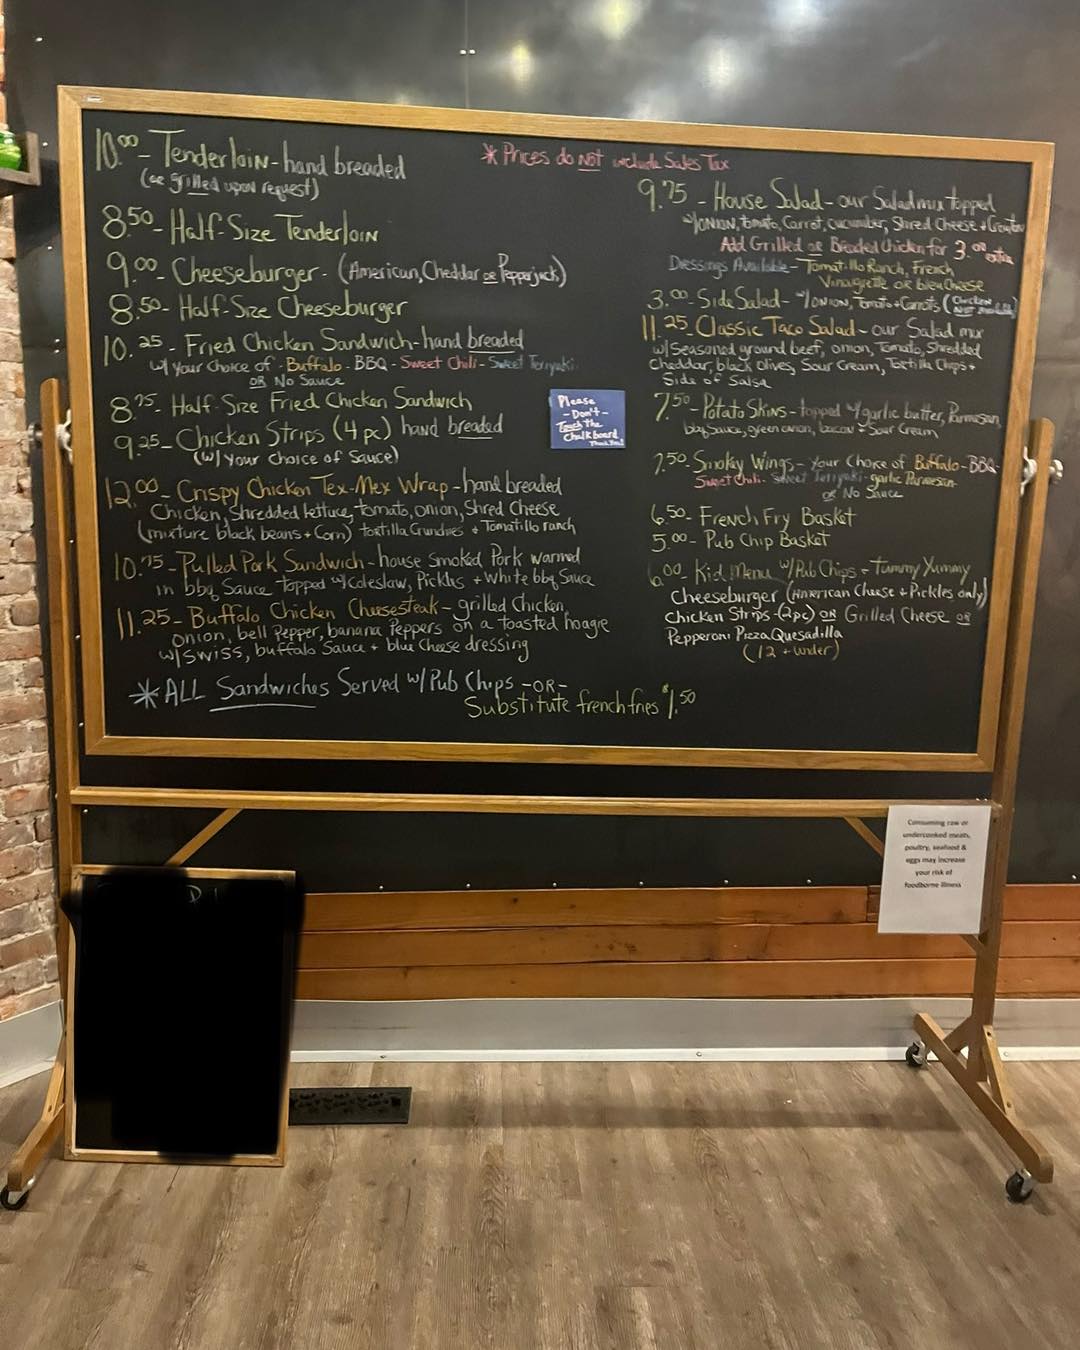 10.00 - Tenderloin - hand breaded
(or grilled upon request)
8.50 - Half-Size Tenderloin
9.00 - Cheeseburger - (American, Cheddar or Pepperjack)
8.50 - Half-Size Cheeseburger
10.25 - Fried Chicken Sandwich - hand breaded
w/ your choice of - Buffalo - BBQ - Sweet Chili - Sweet Teriyaki
OR No Sauce
8.75 - Half-Size Fried Chicken Sandwich
9.25 - Chicken Strips (4 pc) hand breaded
(w/ your choice of Sauce)
12.00 - Crispy Chicken Tex-Mex Wrap - hand breaded
Chicken, Shredded lettuce, tomato, onion, Shred Cheese
(mixture black beans + Corn) tortilla Crunchies + Tomatillo ranch
10.75 - Pulled Pork Sandwich - house smoked Pork warmed
in bbq Sauce topped w/ coleslaw, Pickles + white bbq Sauce
11.25 - Buffalo Chicken Cheesesteak - grilled Chicken,
onion, bell Pepper, banana Peppers on a toasted hoagie
w/ Swiss, buffalo Sauce + blue Cheese dressing
*ALL Sandwiches Served w/ Pub Chips -OR-
Substitute french fries $1.50
* Prices do NOT include Sales Tax
9.75 - House Salad - our Salad mix topped
w/ ONION, tomato, Carrot, cucumber, Shred Cheese + Crouton
Add Grilled or Breaded Chicken for 3.00 extra
Dressings Available - Tomatillo Ranch, French
Vinaigrette or bleu Cheese
3.00 - Side Salad - w/ ONION, Tomato + Carrots (Chicken
NOT available)
11.25 - Classic Taco Salad - our Salad mix
w/ Seasoned ground beef, onion, Tomato, Shredded
Cheddar, black olives, Sour Cream, Tortilla Chips +
Side of Salsa
7.50 - Potato Skins - topped w/ garlic butter, Parmesan,
bbq Sauce, green onion, bacon + Sour Cream
7.50 - Smokey Wings - your Choice of Buffalo - BBQ -
Sweet Chili - Sweet Teriyaki - garlic Parmesan -
or No Sauce
6.50 - French Fry Basket
5.00 - Pub Chip Basket
6.00 - Kid Menu w/ Pub Chips + Tummy Yummy
Cheeseburger (American Cheese + Pickles only)
Chicken Strips - (2pc) OR Grilled Cheese or
Pepperoni Pizza Quesadilla
(12 + under)
Please
- Don't -
Touch the
Chalkboard
Thank You!
Consuming raw or
undercooked meats,
poultry, seafood &
eggs may increase
your risk of
foodborne illness